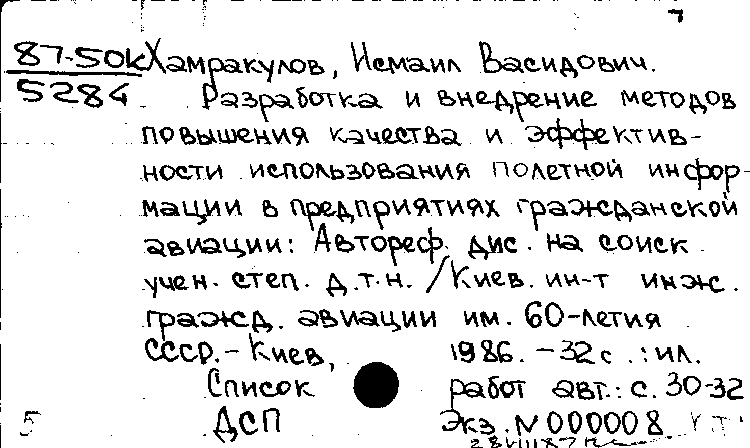 87-50К
5284
Хамракулов, Исмаил Васидович.
Разработка и внедрение методов
повышения качества и эффектив-
ности использования полетной инфор-
мации в предприятиях гражданской
авиации: Автореф. дис. на соиск.
учен. степ. д.т.н. / Киев. ин-т инж.
гражд. авиации им. 60-летия
СССР. - Киев, 1986. - 32 с.: ил.
Список работ авт.: с. 30-32
5 ДСП Экз. N 000008